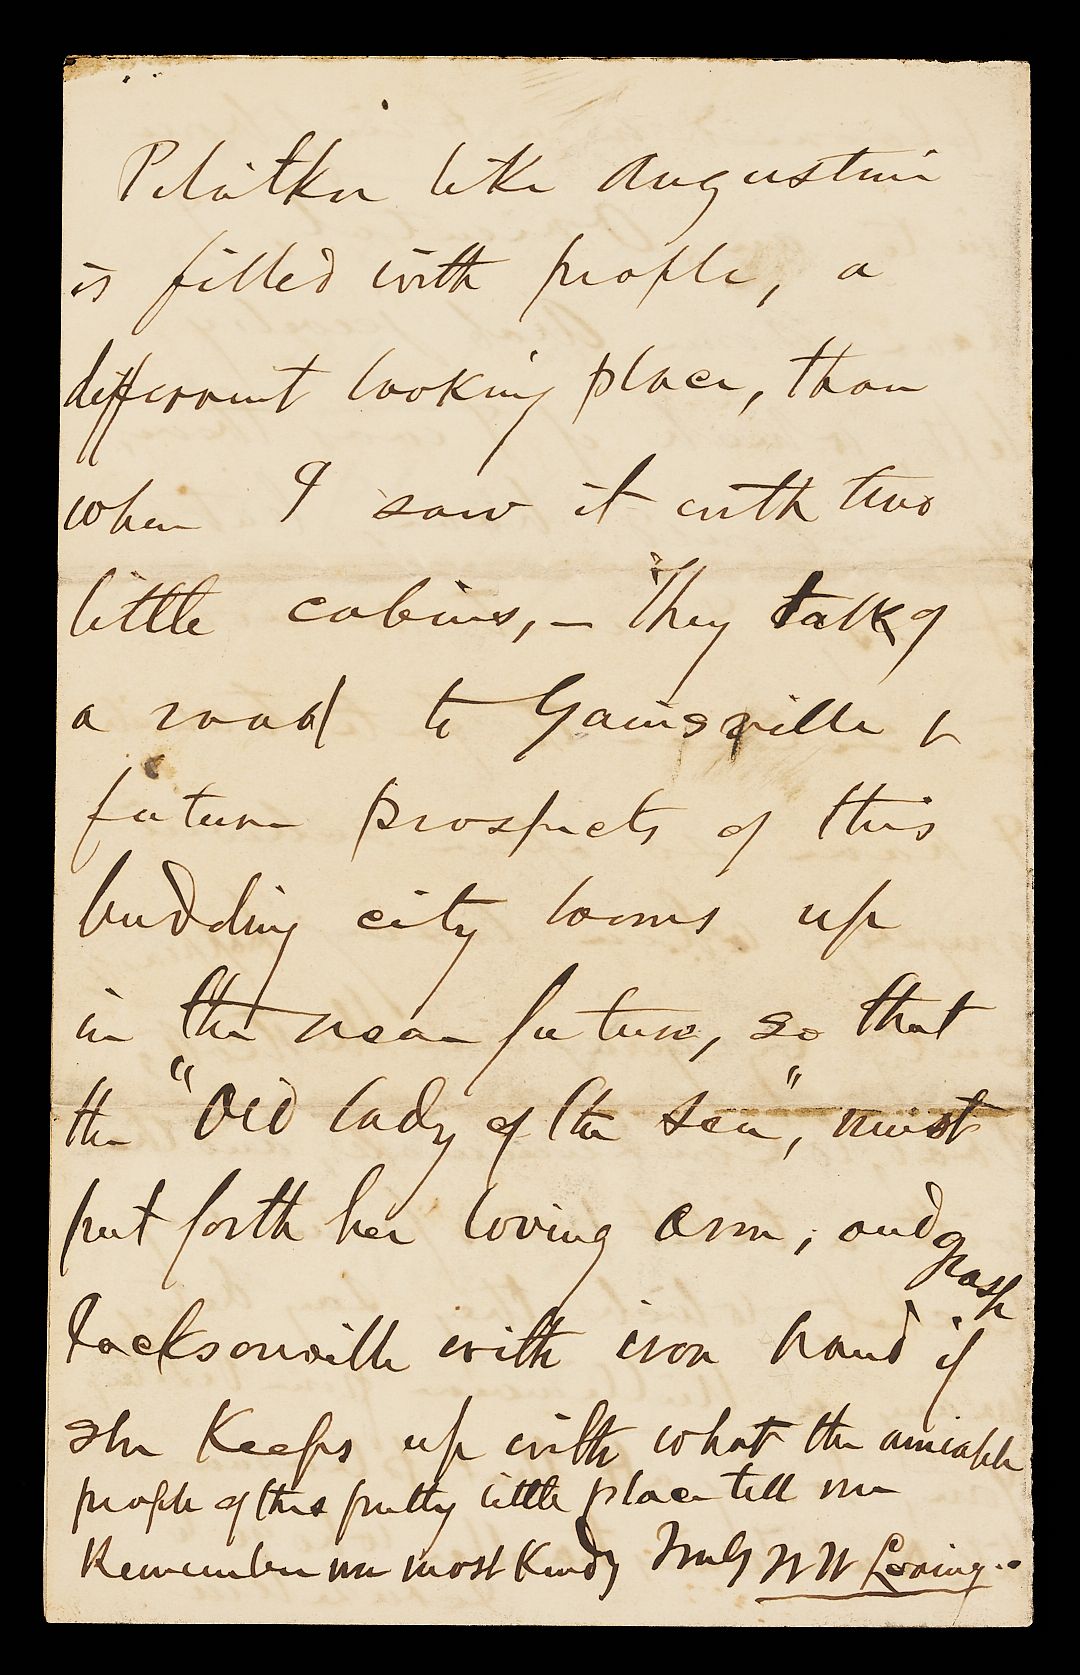 Pilatka like Augustin
is filled with people, a
different looking place, than
when I saw it with two
little cabins, – They talk of
a road to Gainsville &
future prospects of this
budding city looms up
in the near future, so that
the "Old lady of the sea", must
put forth her loving arm, and grasp
Jacksonville with iron hand if
she keeps up with what the amiable
people of this pretty little place tell me
Remember me most kindly Truly W W Loring